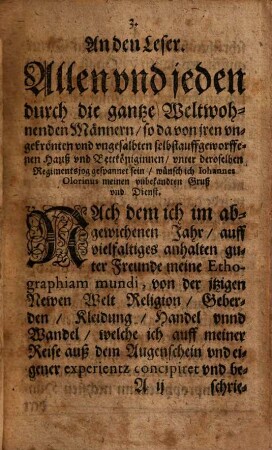 3.
An den Leser.
Allen vnd jeden
durch die gantze Weltwoh-
nenden Männern / so da von jren vn-
gekrönten vnd vngesalbten selbstauffgeworffe-
nen Hauß vnd Bettköniginnen / vnter deroselben
Regimentsjog gespannet sein / wünsch ich Iohannes
Olorinus meinen vnbekandten Gruß
vnd Dienst.
NAch dem ich im ab-
gewichenen Jahr / auff
vielfaltiges anhalten gu-
ter Freunde meine Etho-
graphiam mundi, von der jtzigen
Newen Welt Religion / Geber-
den / Kleidung / Handel vnnd
Wandel / welche ich auff meiner
Reise auß dem Augenschein vnd ei-
gener experientz concipiret vnd be-
A ij schrie-